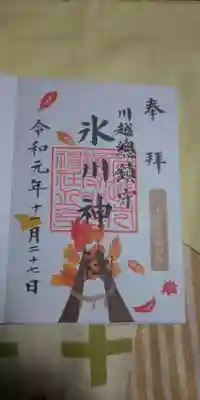 奉拝
川越總鎮守
氷川神社
令和元年十一月二十七日